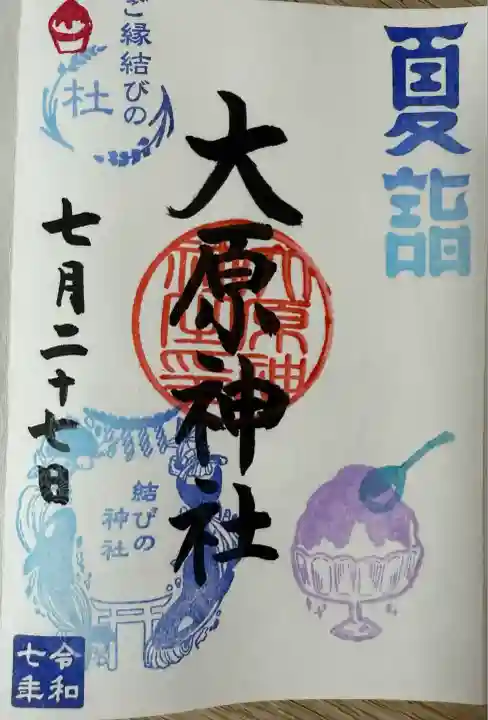 夏詣
大原神社
大原神社印
ご縁結びの
杜
七月二十七日
結びの
神社
令和
七年